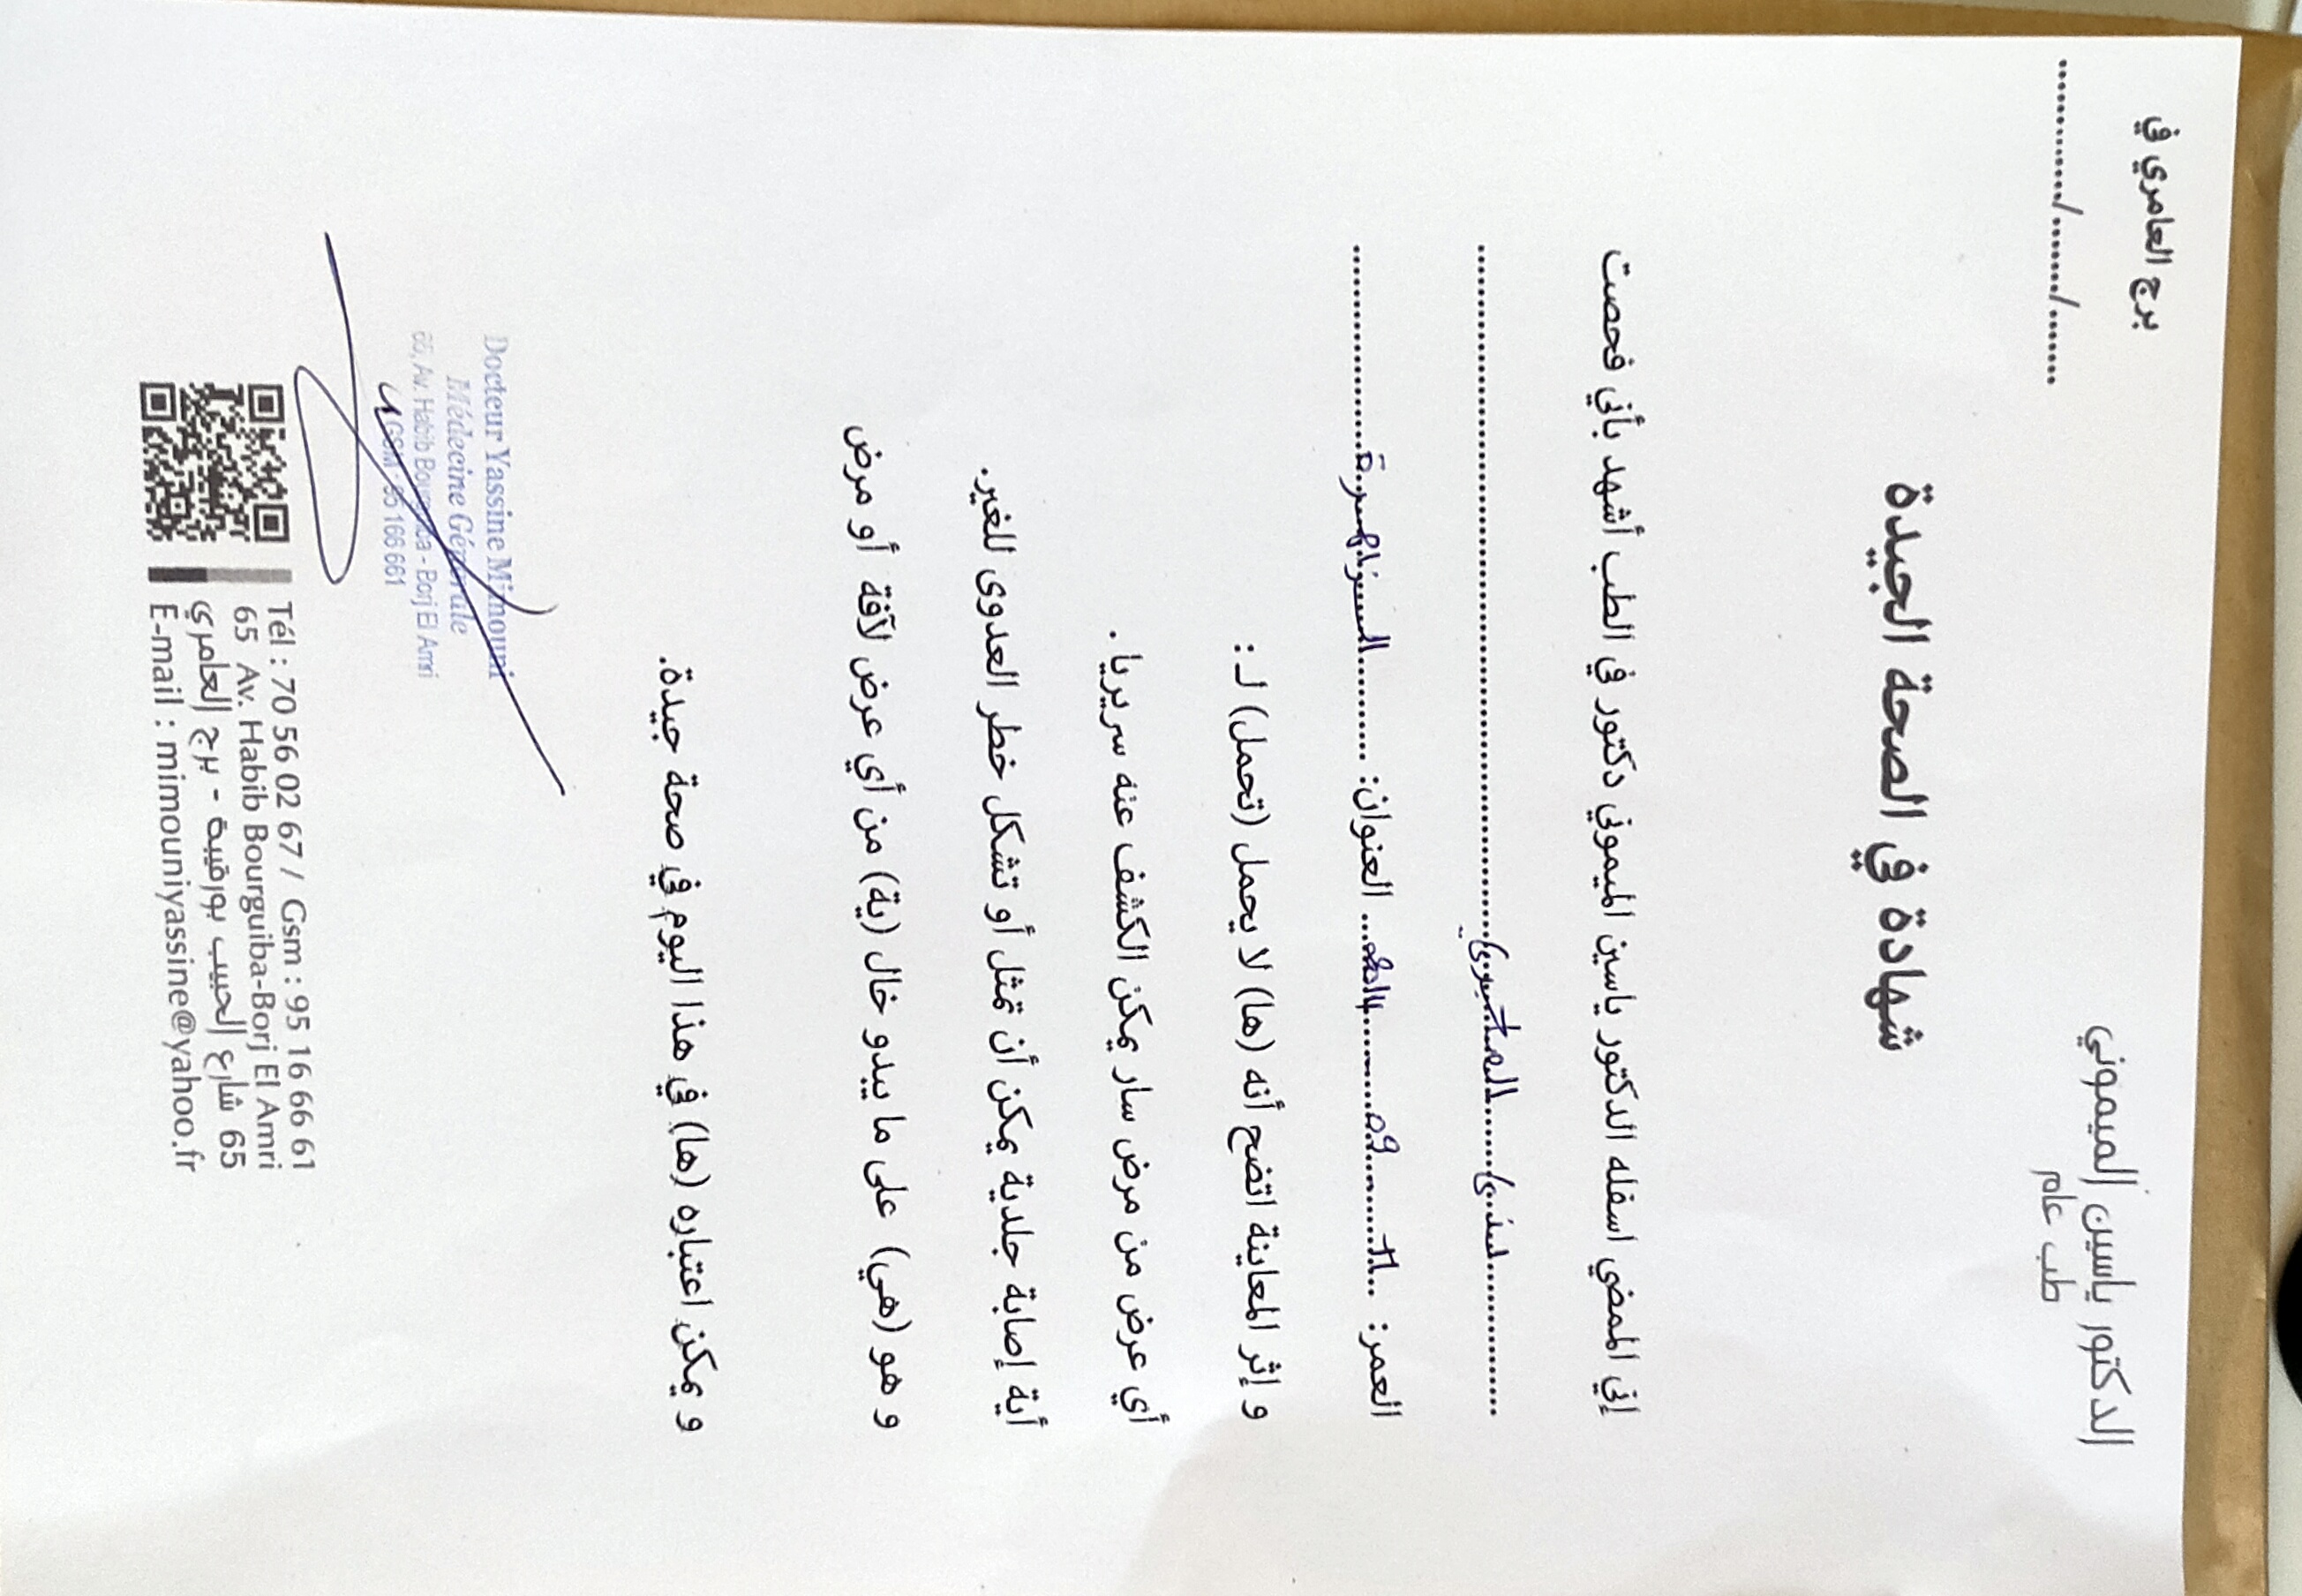 الدكتور ياسين الميموني
طب عام
برج العامري في
............/......../.......
شهادة في الصحة الجيدة
إني الممضي اسفله الدكتور ياسين الميموني دكتور في الطب أشهد بأني فحصت
لبنى
العمر: ... العنوان: ...
و إثر المعاينة اتضح أنه (ها) لا يحمل (تحمل) لـ :
أي عرض من مرض سار يمكن الكشف عنه سريريا .
أية إصابة جلدية يمكن أن تمثل أو تشكل خطر العدوى للغير.
و هو (هي) على ما يبدو خال (ية) من أي عرض لآفة أو مرض
و يمكن اعتباره (ها) في هذا اليوم في صحة جيدة.
Docteur Yassine Mimouni
Médecine Générale
65, Av. Habib Bourguiba - Borj El Amri
GSM : 95 166 661
Tél : 70 56 02 67 / Gsm : 95 16 66 61
65 Av. Habib Bourguiba-Borj El Amri
65 شارع الحبيب بورقيبة - برج العامري
E-mail : mimouniyassine@yahoo.fr